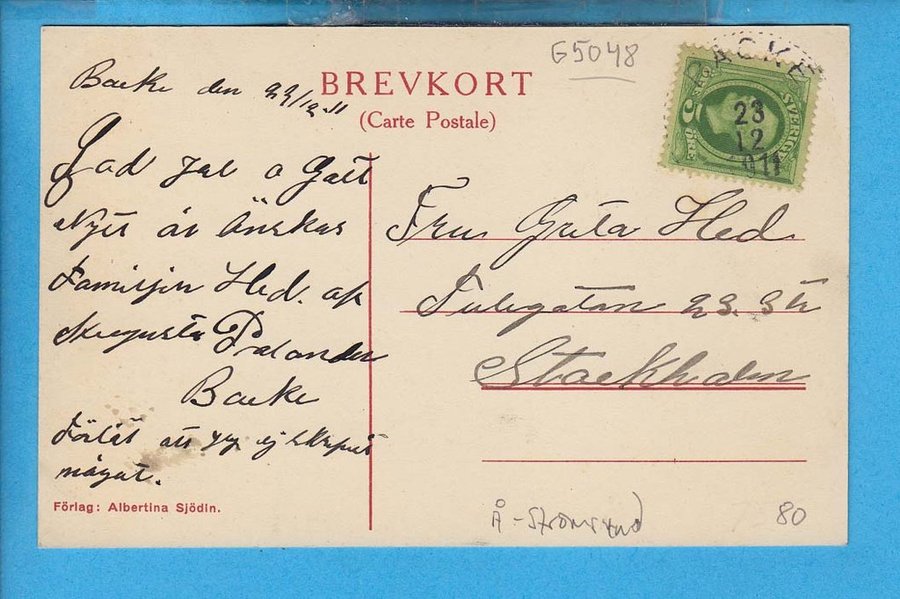 G5048
BREVKORT
(Carte Postale)
Backe den 23/12 11
BACKE
23
12
1911
5
ÖRE
SVERIGE
God Jul o Gott
Nytt år Önskas
Familjen Hed. af
Augusta Palander
Backe
Förlåt att jag ej skrifvit
något.
Fru Greta Hed.
Tulegatan 23. 3 tr
Stockholm
Förlag: Albertina Sjödin.
Å - Strömsund
80